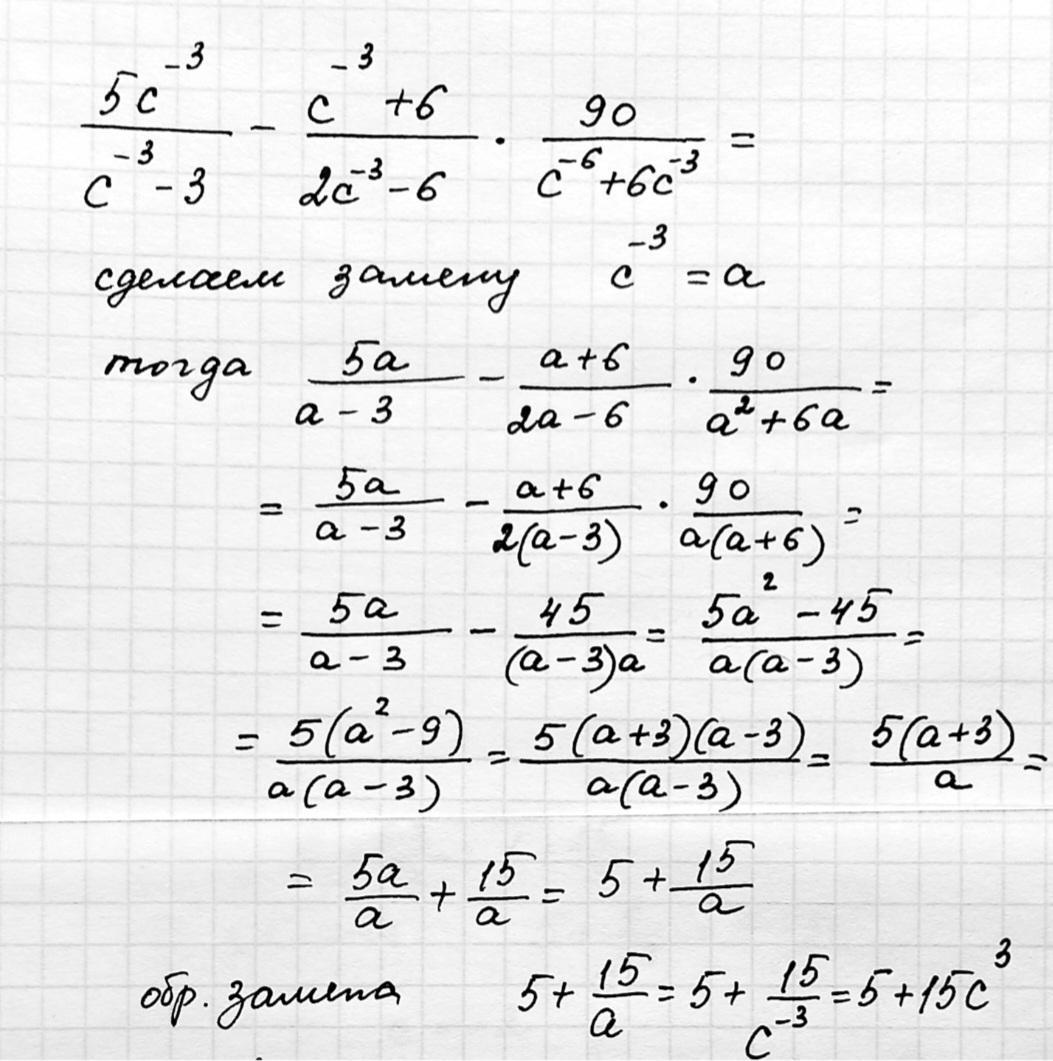 5c⁻³/(c⁻³-3) - (c⁻³+6)/(2c⁻³-6) · 90/(c⁻⁶+6c⁻³) =
сделаем замену c⁻³ = a
тогда 5a/(a-3) - (a+6)/(2a-6) · 90/(a²+6a) =
= 5a/(a-3) - (a+6)/(2(a-3)) · 90/(a(a+6)) =
= 5a/(a-3) - 45/((a-3)a) = (5a²-45)/(a(a-3)) =
= 5(a²-9)/(a(a-3)) = 5(a+3)(a-3)/(a(a-3)) = 5(a+3)/a =
= 5a/a + 15/a = 5 + 15/a
обр. замена 5 + 15/a = 5 + 15/c⁻³ = 5 + 15c³